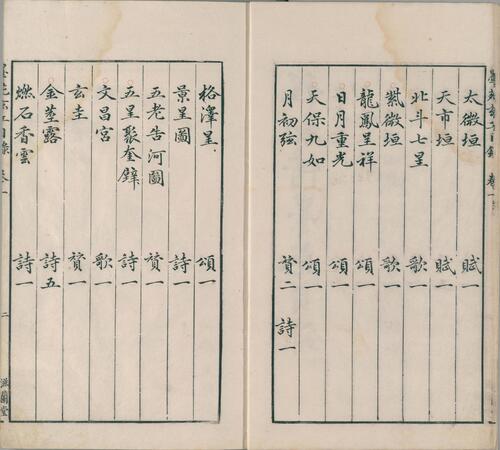 太微垣 賦一
天市垣 賦一
北斗七星 歌一
紫微垣 歌一
龍鳳呈祥 頌一
日月重光 頌一
天保九如 頌一
月初弦 贊二 詩一
格澤星 頌一
景星圖 詩一
五老告河圖 贊一
五星聚奎璧 詩一
文昌宮 歌一
玄圭 贊一
金莖露 詩五
燃石香雲 詩一
目錄 卷一 二 滋蘭堂